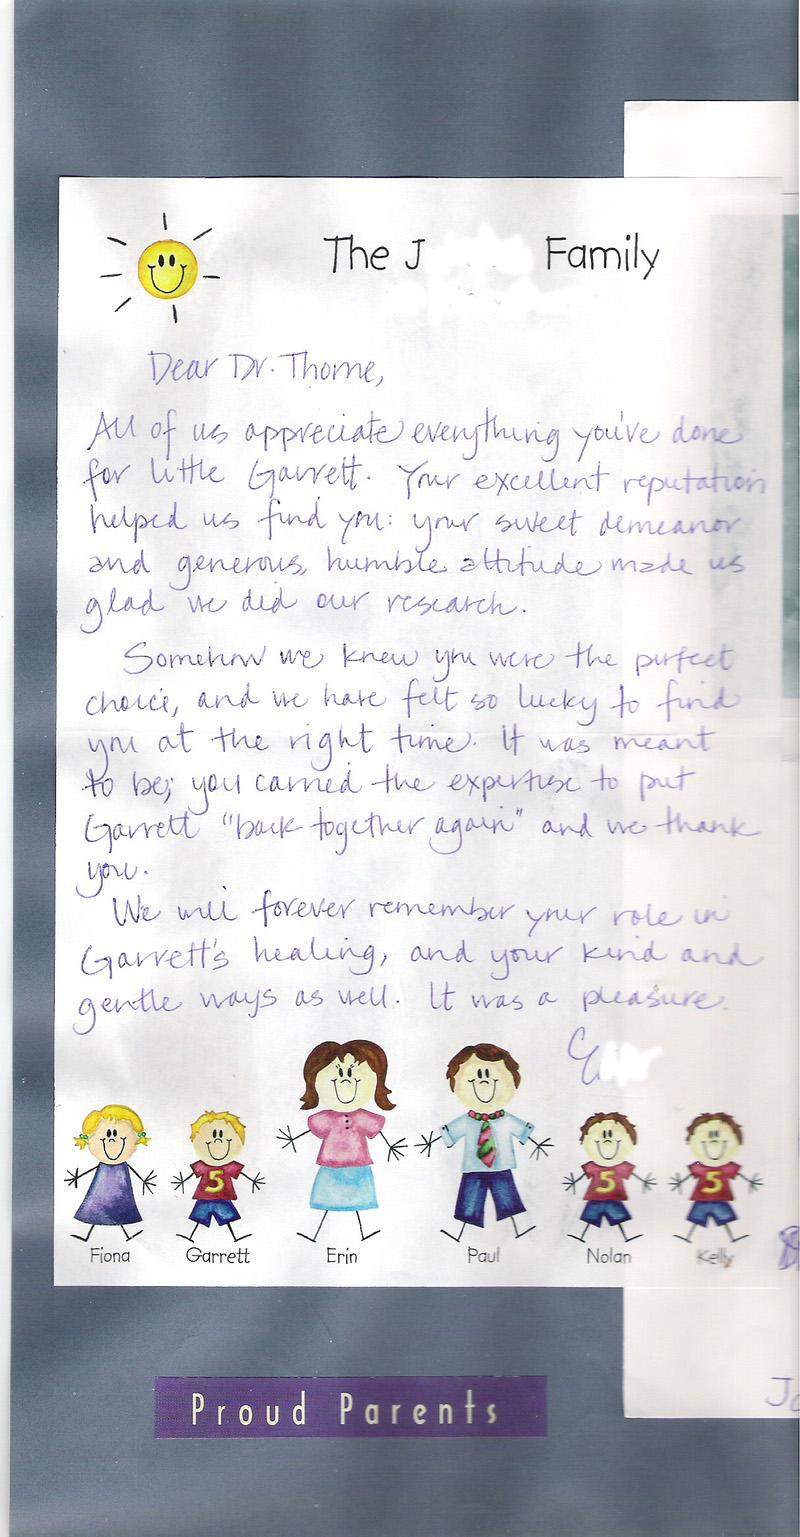 The J Family
Dear Dr. Thorne,
All of us appreciate everything you've done
for little Garrett. Your excellent reputation
helped us find you: your sweet demeanor
and generous, humble attitude made us
glad we did our research.
Somehow we knew you were the perfect
choice, and we have felt so lucky to find
you at the right time. It was meant
to be; you carried the expertise to put
Garrett "back together again" and we thank
you.
We will forever remember your role in
Garrett's healing, and your kind and
gentle ways as well. It was a pleasure.
5 5 5
Fiona Garrett Erin Paul Nolan Kelly
Proud Parents